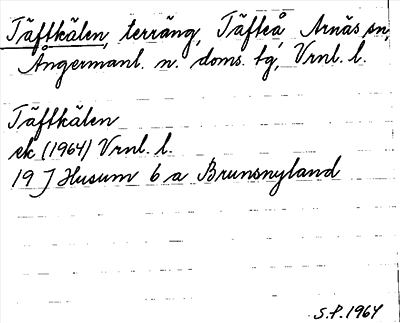 Täftkälen, terräng, Täfteå, Arnäs sn,
Ångermanl. n. doms. tg, Vrnl. l.
Täftkälen
ek (1964) Vrnl. l.
19 J Husum 6 a Brunsnyland
S.P. 1964